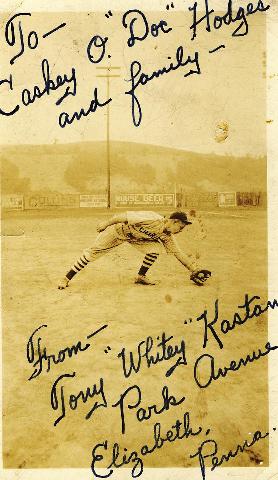 To—
Caskey O. "Doc" Hodges
and family—
HOUSE BEER
From—
Tony "Whitey" Kastan
Park Avenue
Elizabeth,
Penna.